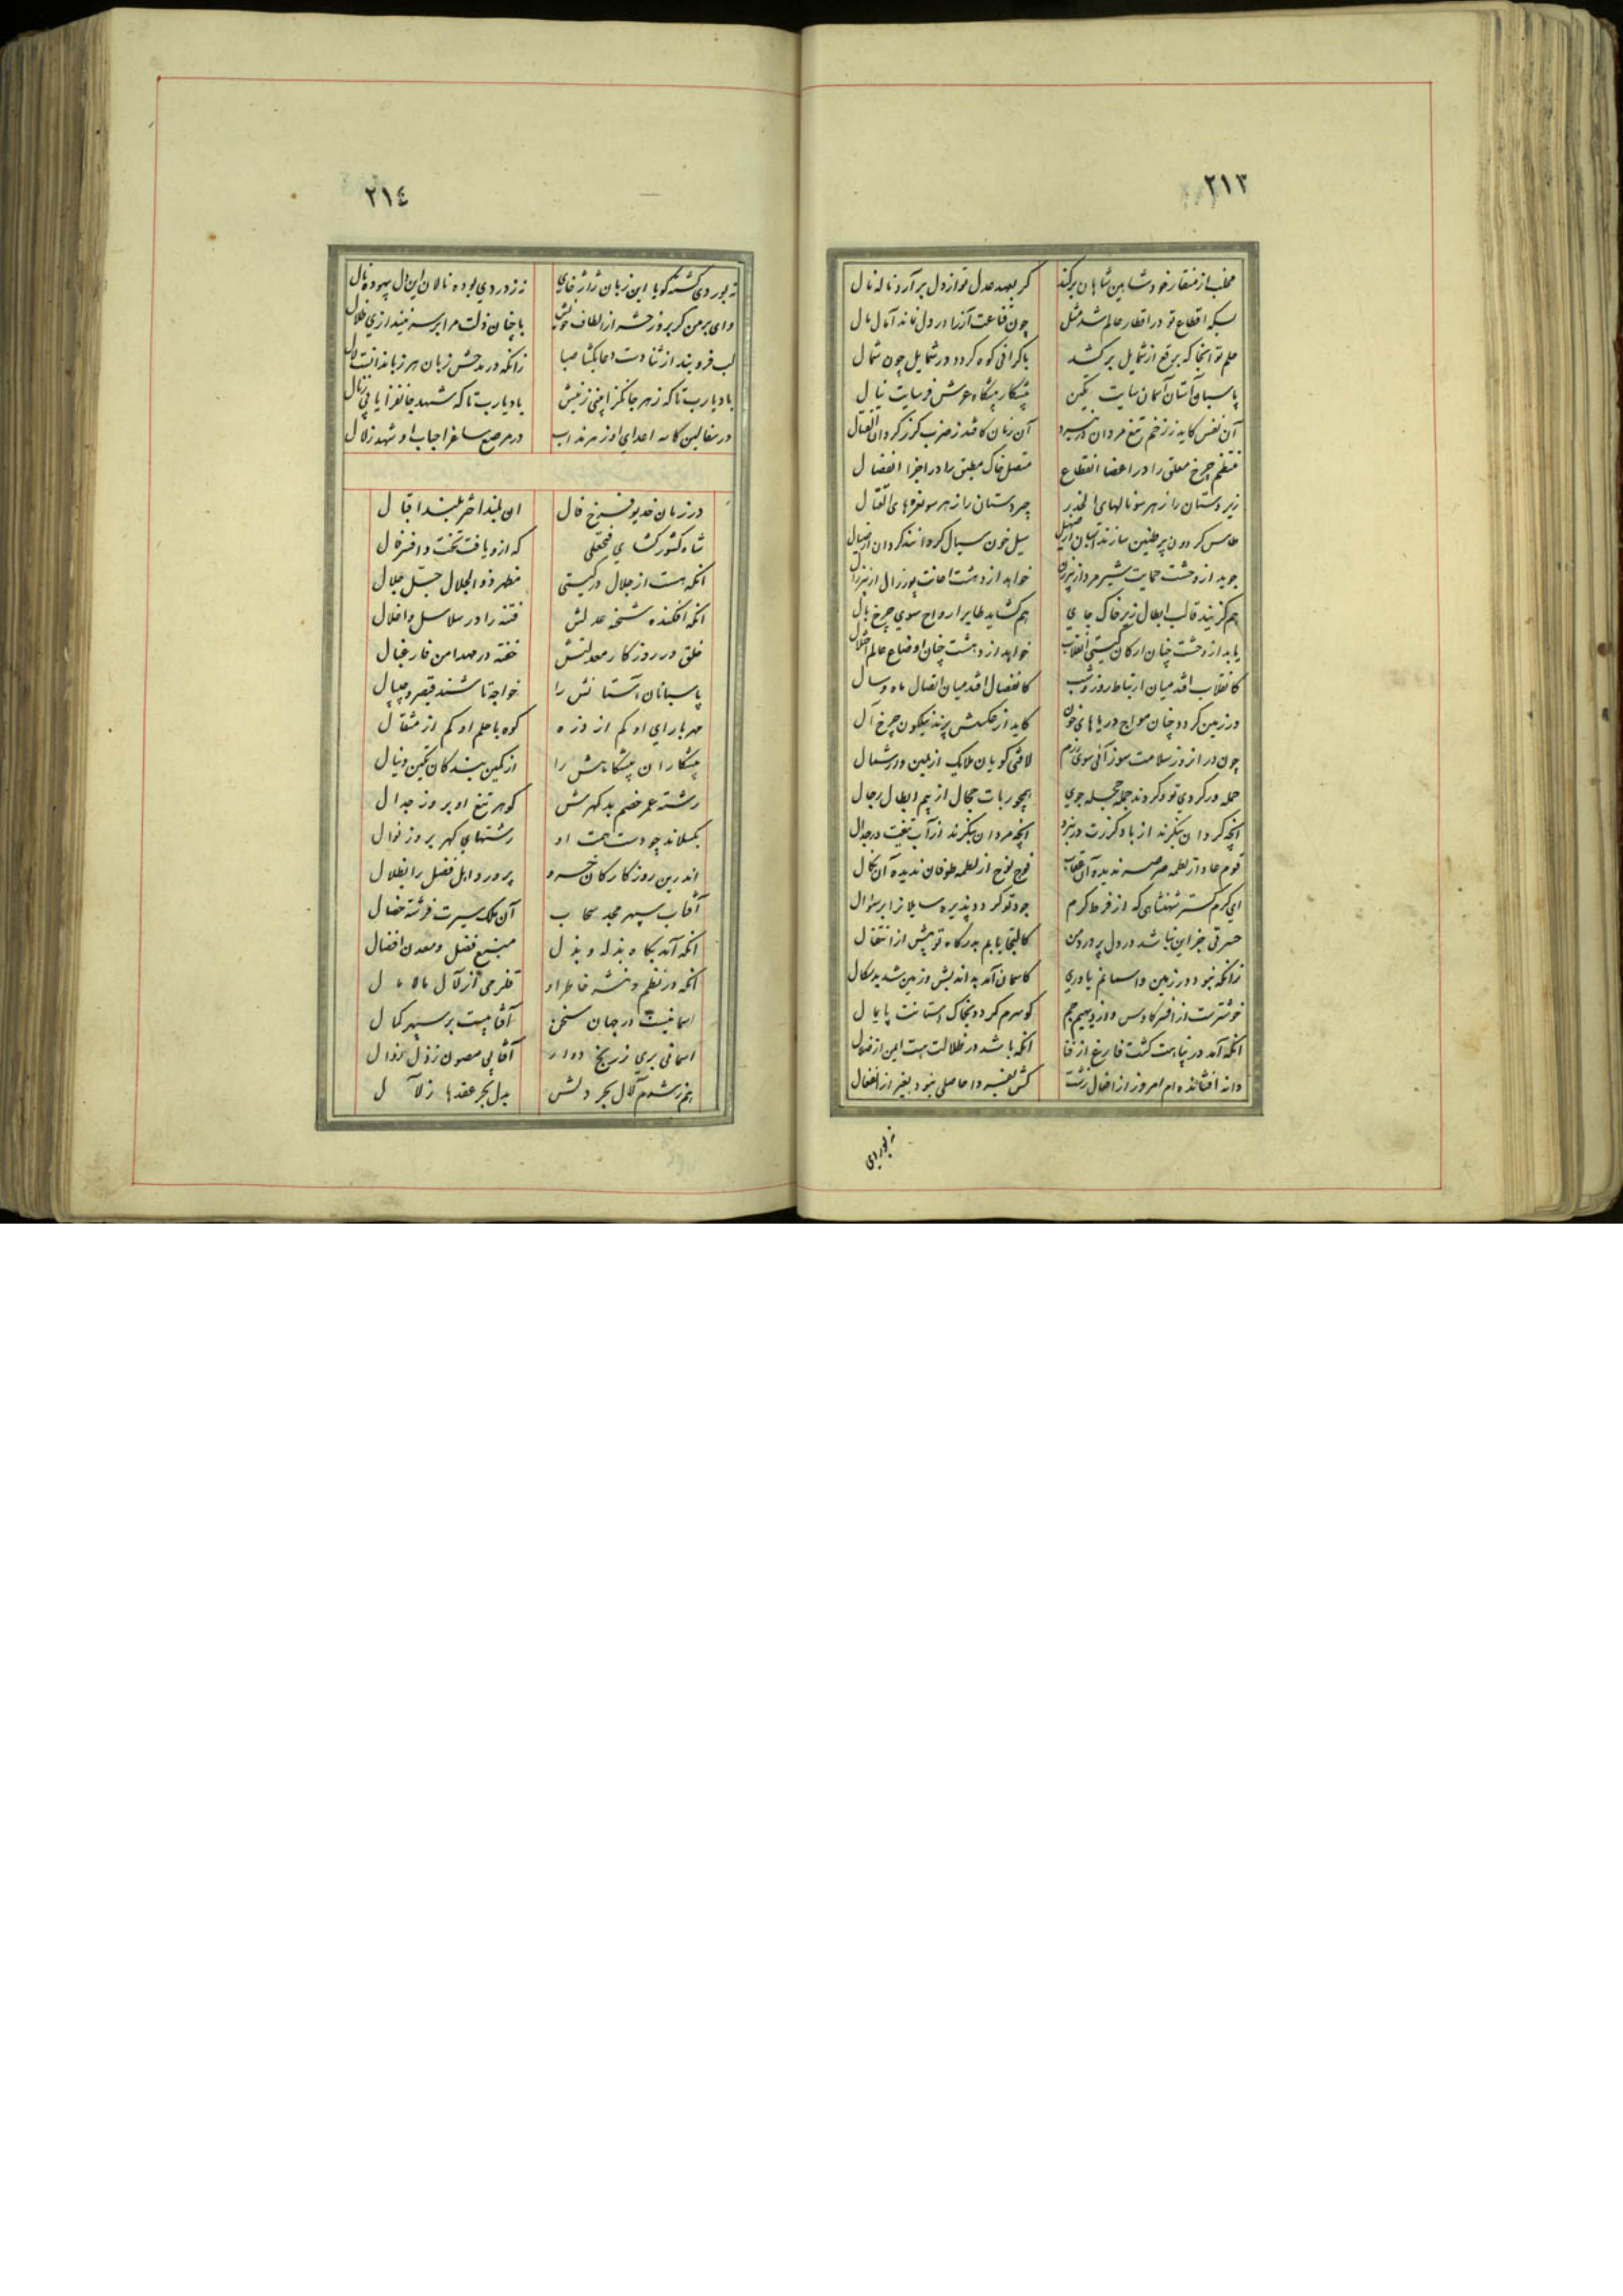 ٢١٣
مخلب از منقار خود شاهین شاهان برکند
کر بعهد عدل تو از دل برآرد ناله نال
بسکه اقطاع تو در اقطار عالم شد مثل
چون قناعت آز را در دل نماند آمال مال
حلم تو انجا که برقع از شمایل برکشد
با کرانی کوه کردد در شمایل چون شمال
پاسبان آستان آسمان سایت تکین
پیشکار پیشکاه عرش فرسایت نیال
آن نفس کاید ز زخم تیغ مردان در نبرد
آن زمان کافتد ز ضرب کرز کردان در قتال
منتظم چرخ معلق را در اعضا انقطاع
متصل خاک مطبق را در اجزا انفصال
زیر دستان را ز هر سو نالهای الحذر
چیره دستان را ز هر سو نعره های القتال
طاس کردون پر طنین سازند اسبان از صهیل
سیل خون سیال کردانند کردان از صیال
جوید از وحشت حمایت شیر مرد از پیرزن
خواهد از دهشت اعانت پور زال از پیرزال
هم کزیند قالب ابطال زیر خاک جای
هم کشاید طایر ارواح سوی چرخ بال
یابد از وحشت چنان ارکان کیتی انقلاب
خواهد از دهشت چنان اوضاع عالم اختلال
کانقلاب افتد میان ارتباط روز و شب
کانفصال افتد میان اتصال ماه و سال
در زمین کردد چنان مواج دریاهای خون
کاید از عکسش پرند نیلکون چرخ آل
چون در انروز سلامت سوز آئی سوی رزم
لافتی کویان ملایک از یمین و از شمال
حمله ور کردی تو و کردند جمله حجله جوی
همچو ربات حجال از بیم ابطال رجال
آنچه کردان بنکرند از باد کرزت در نبرد
آنچه مردان بنکرند از آب تیغت در جدال
قوم عاد از لطمه صرصر ندیده آن عقاب
فوج نوح از لطمه طوفان ندیده آن نکال
ای کرم کستر شهنشاهی که از فرط کرم
جود تو کردد پذیره سایلانرا بر سؤال
حسرتی جز این نباشد در دل پر درد من
کالتجا یابم بدرکاه تو پیش از انتقال
زانکه نبود در زمین و اسمانم یاوری
کاسمان آمد بداندیش و زمین شد بدسکال
خوشترست از افسر کاوس و از دیهیم جم
کو سرم کردد بخاک استانت پایمال
آنکه آمد در پناهت کشت فارغ از فنا
آنکه باشد در ظلالت هست ایمن از زوال
دانه افشانده ام امروز از افعال زشت
کش بفردا حاصلی نبود بغیر از انفعال
نه بوردی
٢١٤
نه بوردی کشته کویا این زبان ژاژخای
نه ز دردی بوده نالان این دل بیهوده نال
وای بر من کر بروز حشر از الطاف خویش
با چنان ذلت مرا بر سر نیندازی ظلال
لب فروبند از ثنا دست دعا بکشا صبا
زانکه در مدحش زبان هر زباندانیست لال
باد یارب تا که زهر جانکزا یعنی ز نیش
باد یارب تا که شهد جانفزا یابی ز نال
در سفالین کاسه اعدای او زهر مذاب
در مرصع ساغر احباب او شهد زلال
در زمان خدیو فرخ فال
ان بلند اختر بلند اقبال
شاه کشور کشای فتحعلی
که ازو یافت تخت و افسر فال
انکه هست از جلال در کیتی
مظهر ذوالجلال جل جلال
انکه افکنده شحنه عدلش
فتنه را در سلاسل و اغلال
خلق در روزکار معدلتش
خفته در مهد امن فارغبال
پاسبانان آستانش را
خواجه تاشند قیصر و چیپال
مهر با رای او کم از ذره
کوه با حلم او کم از مثقال
پیشکاران پیشکاهش را
از کمین بندکان تکین و نیال
رشته عمر خصم بدکهرش
کوهر تیغ او بروز جدال
بکسلاند چو دست همت او
رشتهای کهر بروز نوال
اندرین روزکار کان خسرو
پرورد اهل فضل را بظلال
آفتاب سپهر مجد سحاب
آن ملک سیرت فرشته خصال
انکه آمد بکاه بذله و بذل
منبع فضل و معدن افضال
انکه در نظم و نثر خاطر او
قلزمی از لآل مالامال
اسمانیست در جهان سخن
آفتابیست بر سپهر کمال
اسمانی بری ز رنج دوار
آفتابی مصون ز ذل زوال
هم ز رشح لآل بحر دلش
بدل بحر عقدها ز لآل